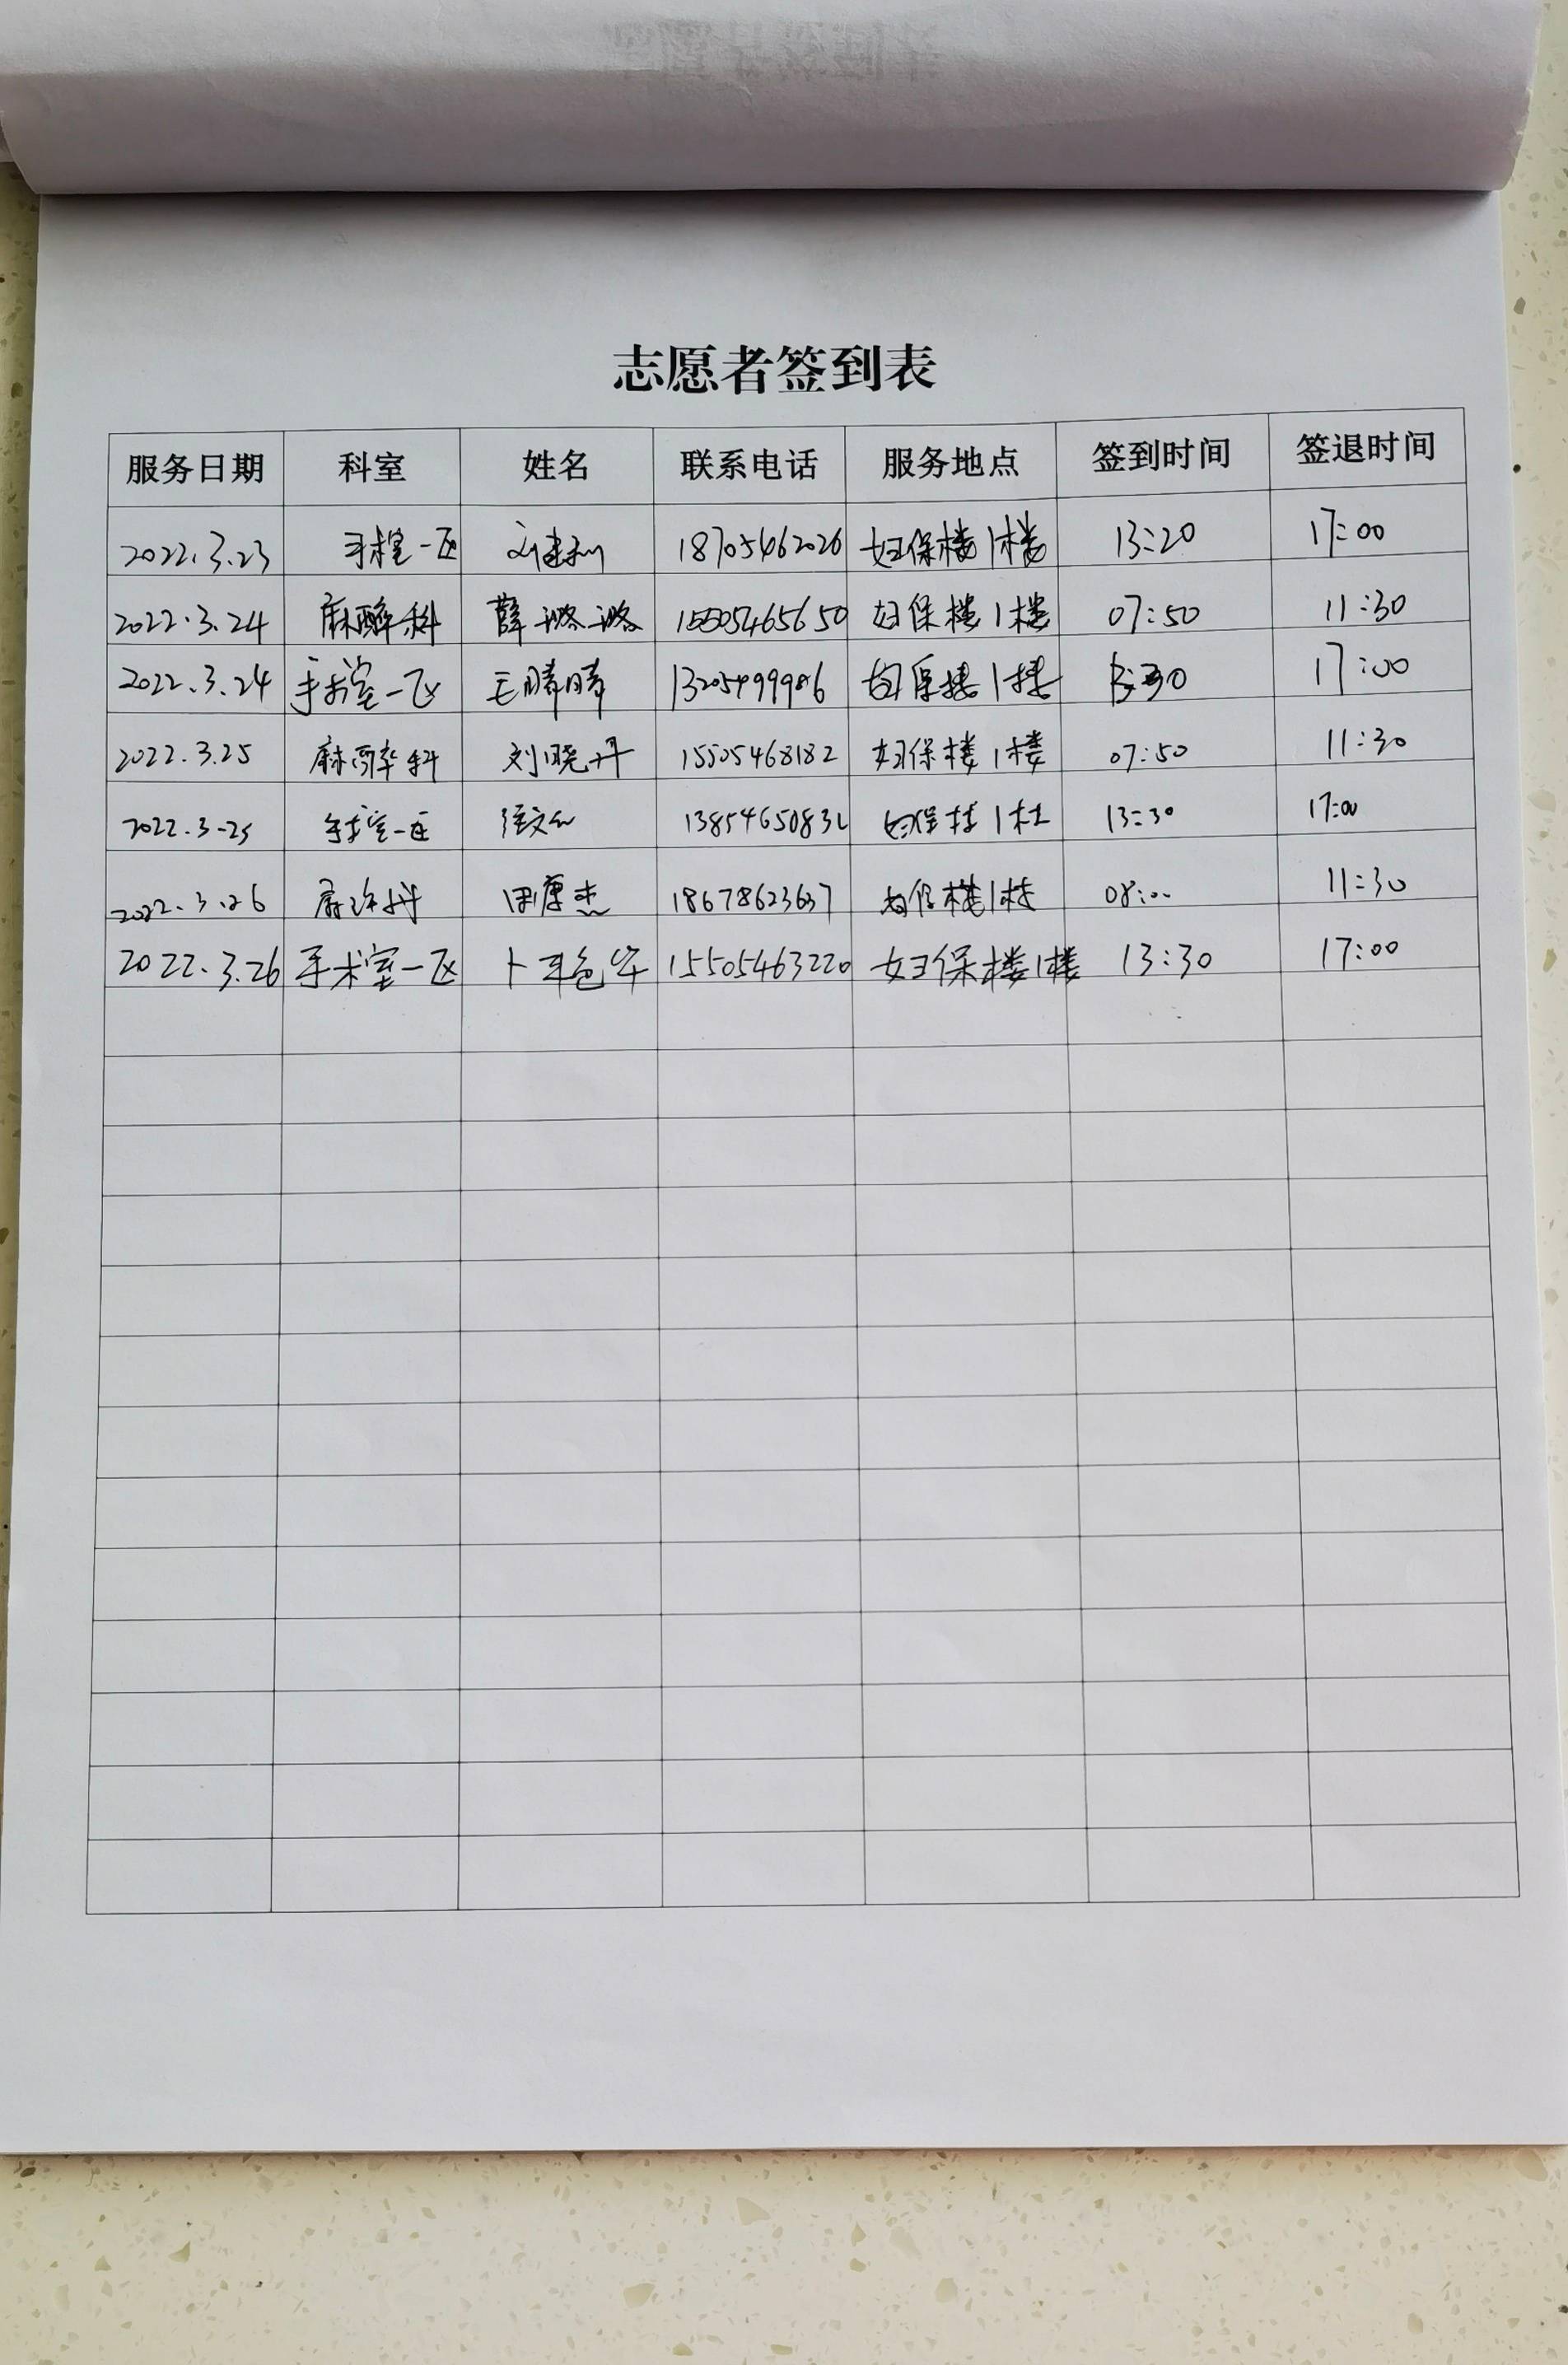 志愿者签到表
服务日期 科室 姓名 联系电话 服务地点 签到时间 签退时间
2022.3.23 手术室一区 刘建利 18705462026 妇保楼1楼 13:20 17:00
2022.3.24 麻醉科 薛璐璐 15505465650 妇保楼1楼 07:50 11:30
2022.3.24 手术室一区 毛晴晴 妇保楼1楼 13:30 17:00
2022.3.25 麻醉科 刘晓丹 15505468182 妇保楼1楼 07:50 11:30
2022.3.25 手术室一区 妇保楼1楼 13:30 17:00
2022.3.26 麻醉科 18678623637 妇保楼1楼 08:00 11:30
2022.3.26 手术室一区 15505463220 妇保楼1楼 13:30 17:00